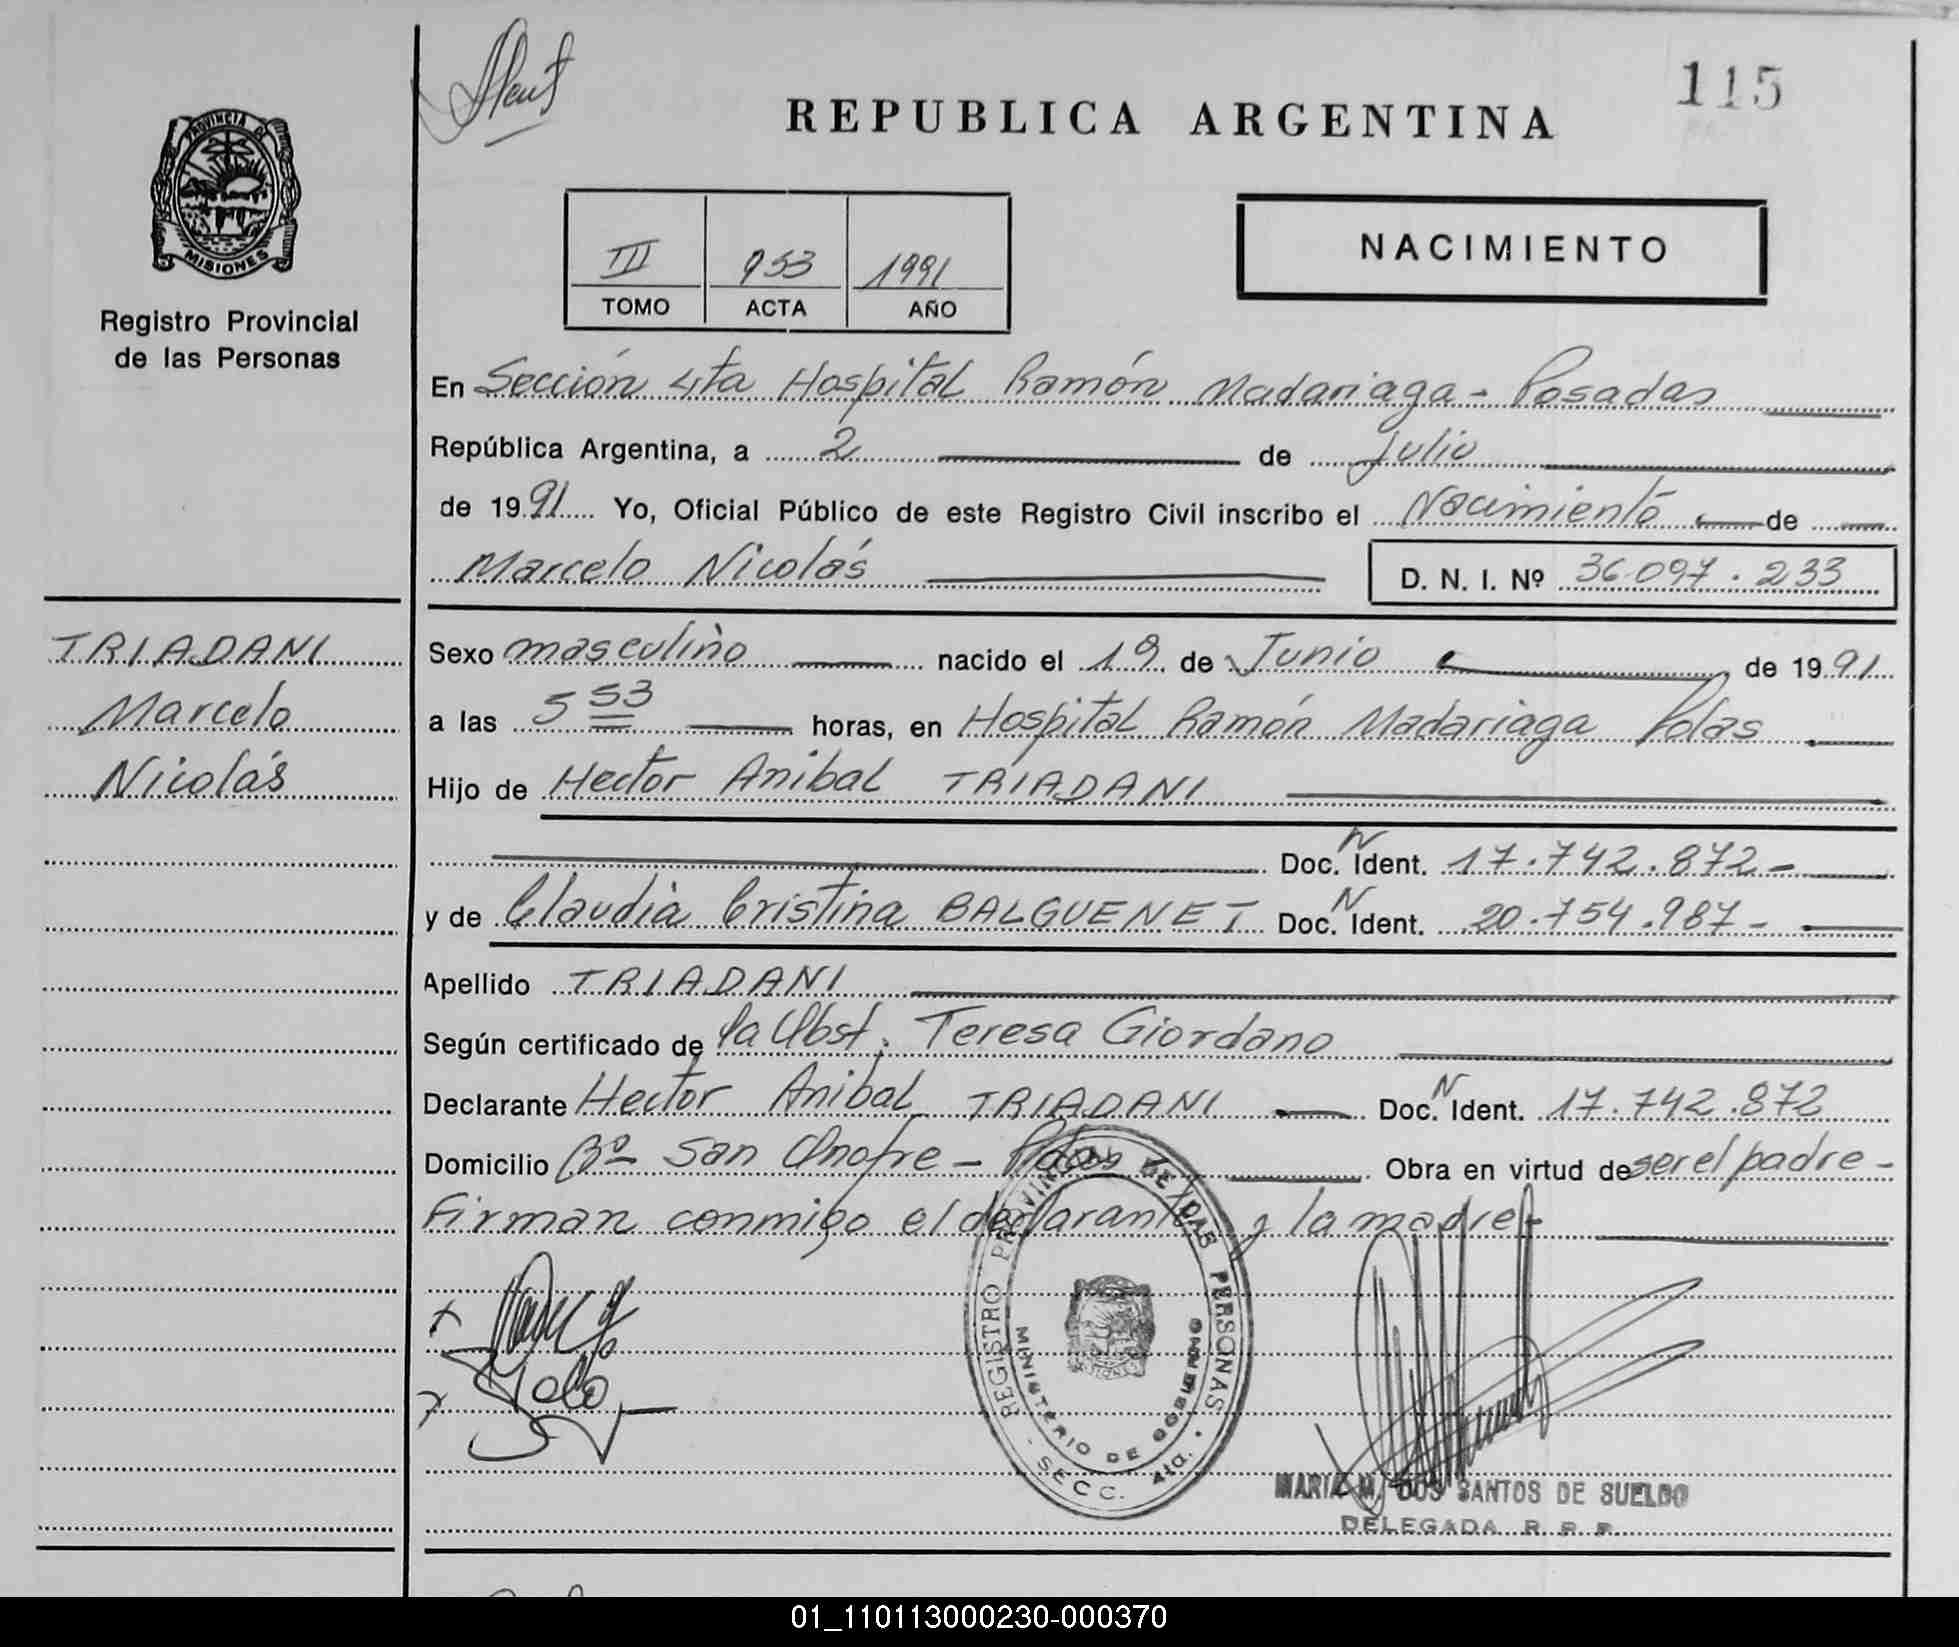 115
REPUBLICA ARGENTINA
PROVINCIA DE
MISIONES
Registro Provincial
de las Personas
III 953 1991
TOMO ACTA AÑO
NACIMIENTO
En Sección 4ta Hospital Ramón Madariaga - Posadas
República Argentina, a 2 de Julio
de 1991 Yo, Oficial Público de este Registro Civil inscribo el Nacimiento de
Marcelo Nicolás D. N. I. Nº 36.097.233
TRIADANI
Marcelo
Nicolás
Sexo masculino nacido el 19 de Junio de 1991
a las 5 53 horas, en Hospital Ramón Madariaga Pdas
Hijo de Hector Anibal TRIADANI
Doc. N Ident. 17.742.872-
y de Claudia Cristina BALGUENET Doc. N Ident. 20.754.987-
Apellido TRIADANI
Según certificado de la Obst. Teresa Giordano
Declarante Hector Anibal TRIADANI Doc. N Ident. 17.742.872
Domicilio Bº San Onofre - Pdas Obra en virtud de ser el padre-
Firman conmigo el declarante y la madre-
REGISTRO PROVINCIAL DE LAS PERSONAS
MINISTERIO DE GOBIERNO
- SECC. 4ta. -
MARIA M. DOS SANTOS DE SUELDO
DELEGADA R. P. P.
01_110113000230-000370